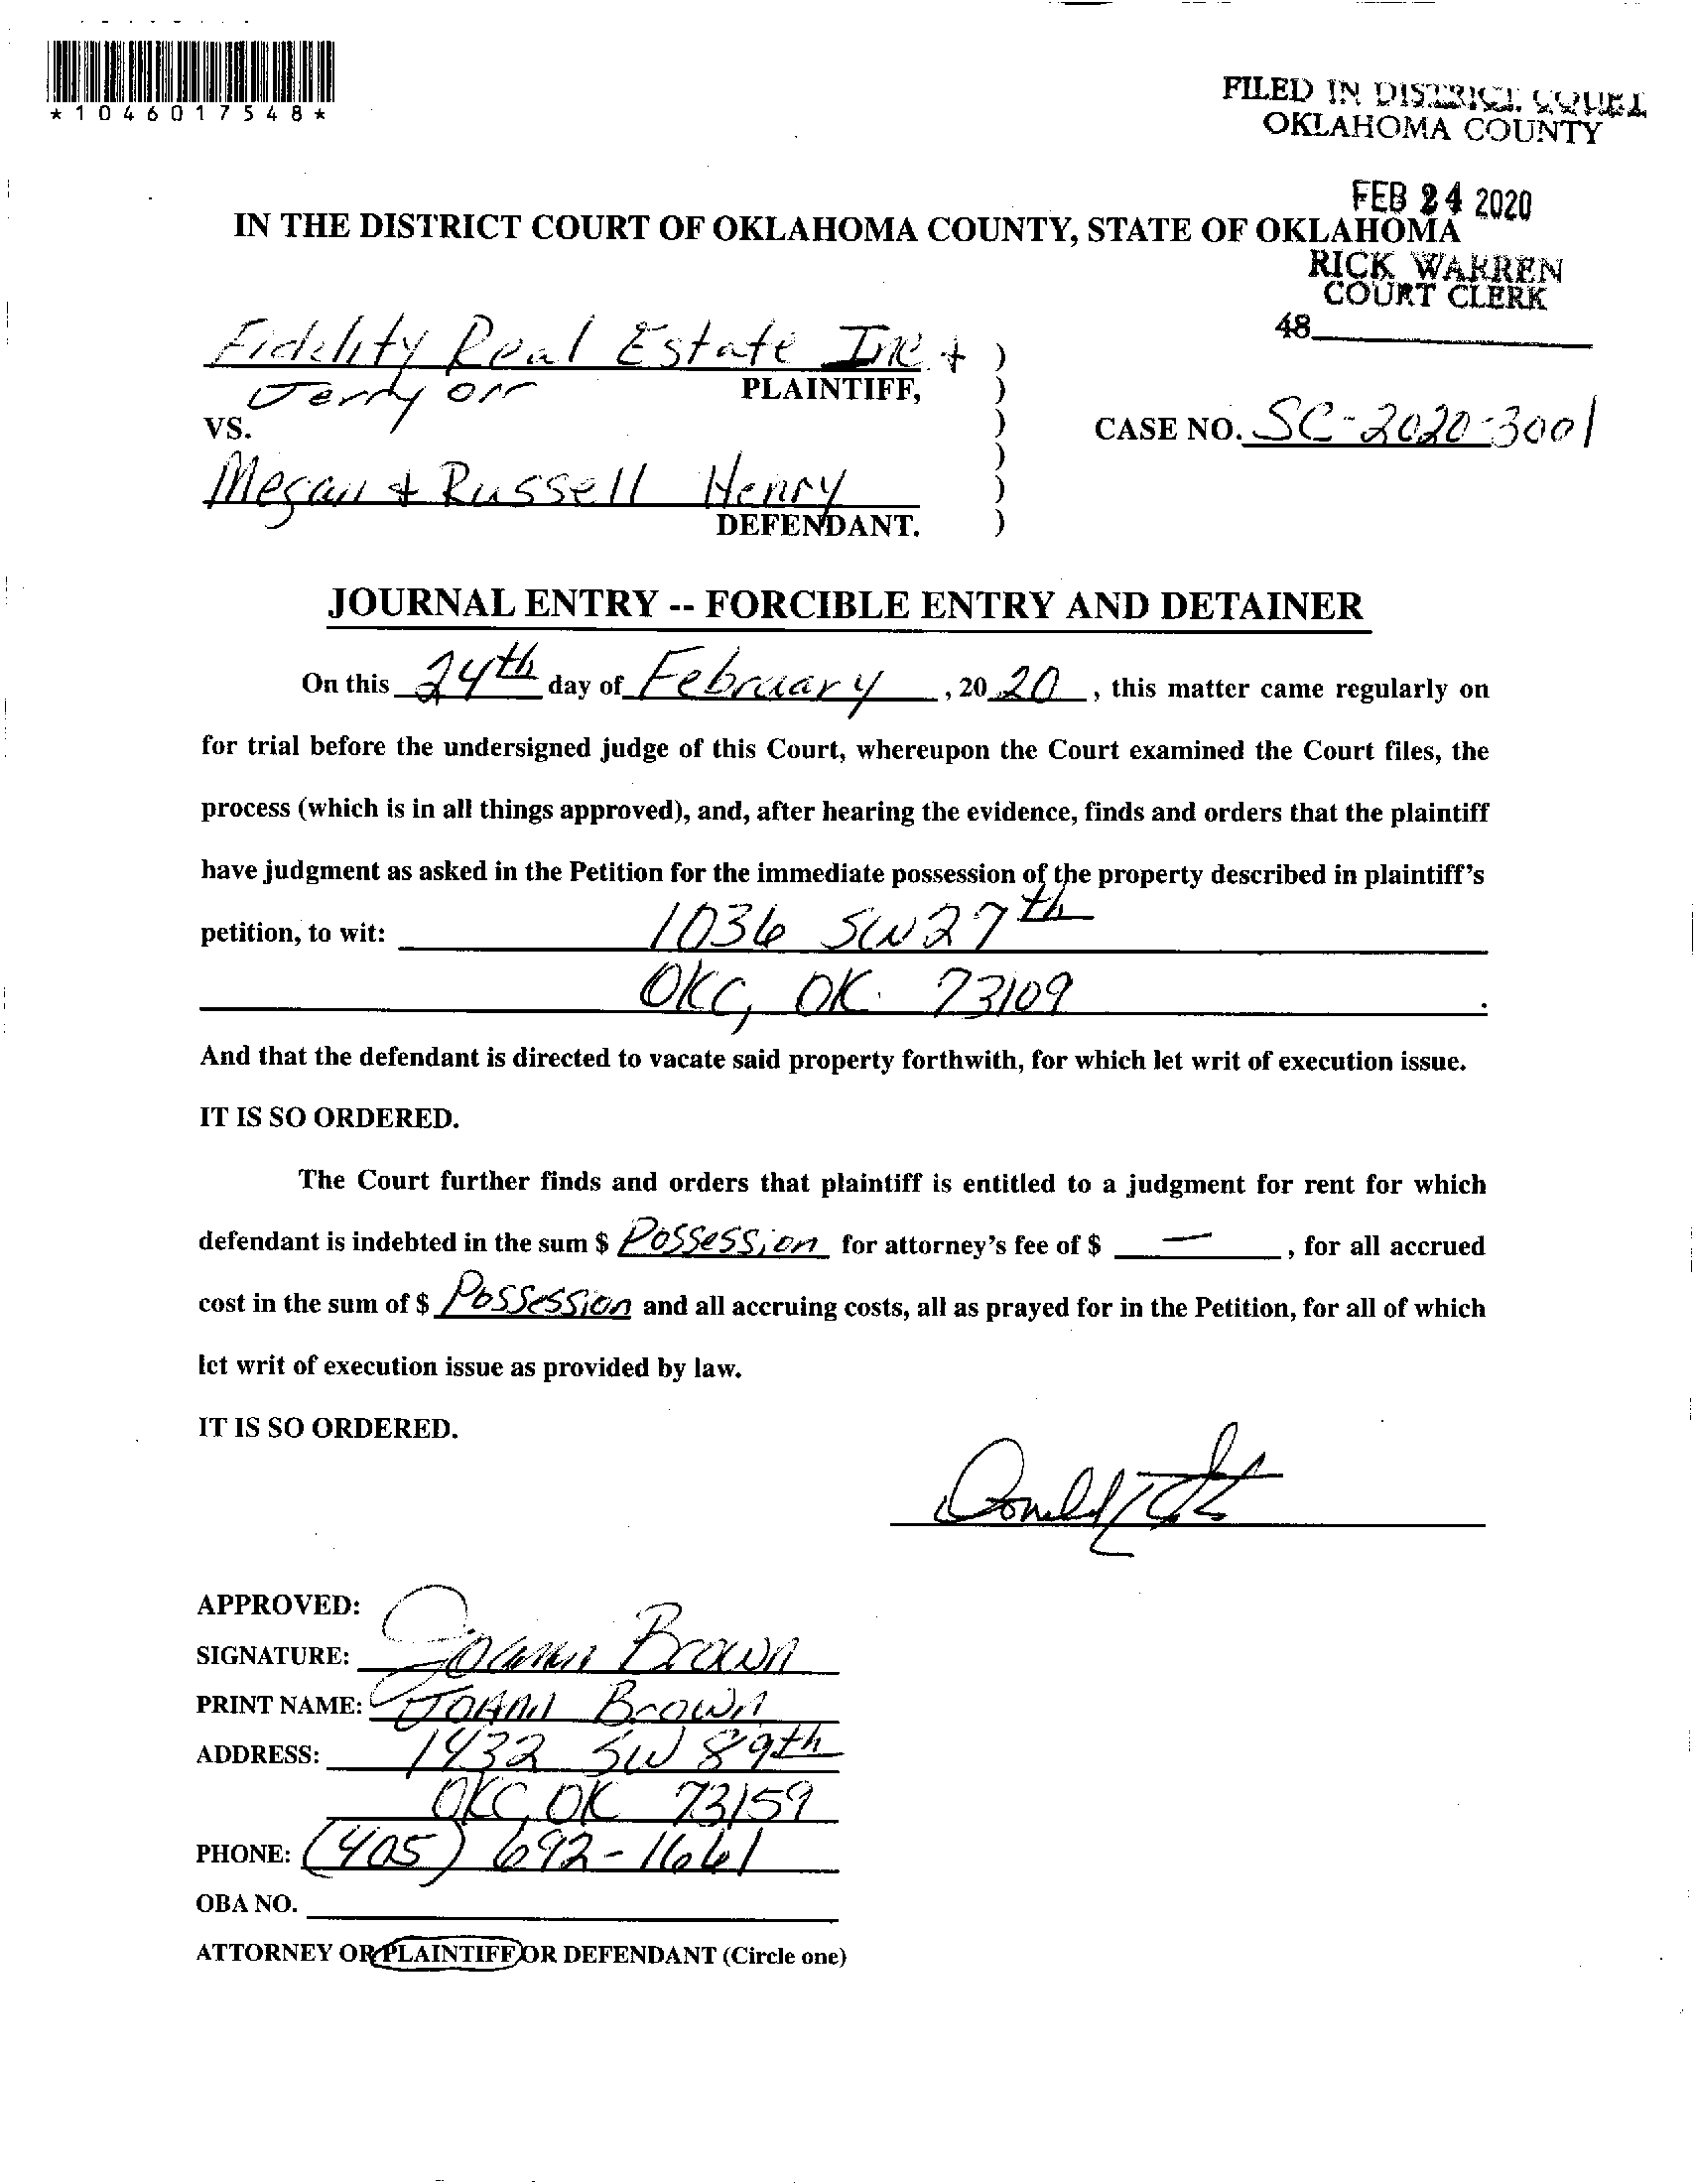 *1046017548*
FILED IN DISTRICT COURT
OKLAHOMA COUNTY
FEB 24 2020
IN THE DISTRICT COURT OF OKLAHOMA COUNTY, STATE OF OKLAHOMA
RICK WARREN
COURT CLERK
48
Fidelity Real Estate Inc. + )
Jerry Orr PLAINTIFF, )
VS. )
CASE NO. SC-2020-3001
)
Megan + Russell Henry )
DEFENDANT. )
JOURNAL ENTRY -- FORCIBLE ENTRY AND DETAINER
On this 24th day of February, 20 20, this matter came regularly on
for trial before the undersigned judge of this Court, whereupon the Court examined the Court files, the
process (which is in all things approved), and, after hearing the evidence, finds and orders that the plaintiff
have judgment as asked in the Petition for the immediate possession of the property described in plaintiff's
petition, to wit: 1036 SW 27th
OKC, OK. 73109.
And that the defendant is directed to vacate said property forthwith, for which let writ of execution issue.
IT IS SO ORDERED.
The Court further finds and orders that plaintiff is entitled to a judgment for rent for which
defendant is indebted in the sum $ Possession for attorney's fee of $ —, for all accrued
cost in the sum of $ Possession and all accruing costs, all as prayed for in the Petition, for all of which
let writ of execution issue as provided by law.
IT IS SO ORDERED.
APPROVED:
SIGNATURE: Joann Brown
PRINT NAME: JOANN Brown
ADDRESS: 1432 SW 89th
OKC, OK 73159
PHONE: (405) 692-1661
OBA NO.
ATTORNEY OR PLAINTIFF OR DEFENDANT (Circle one)